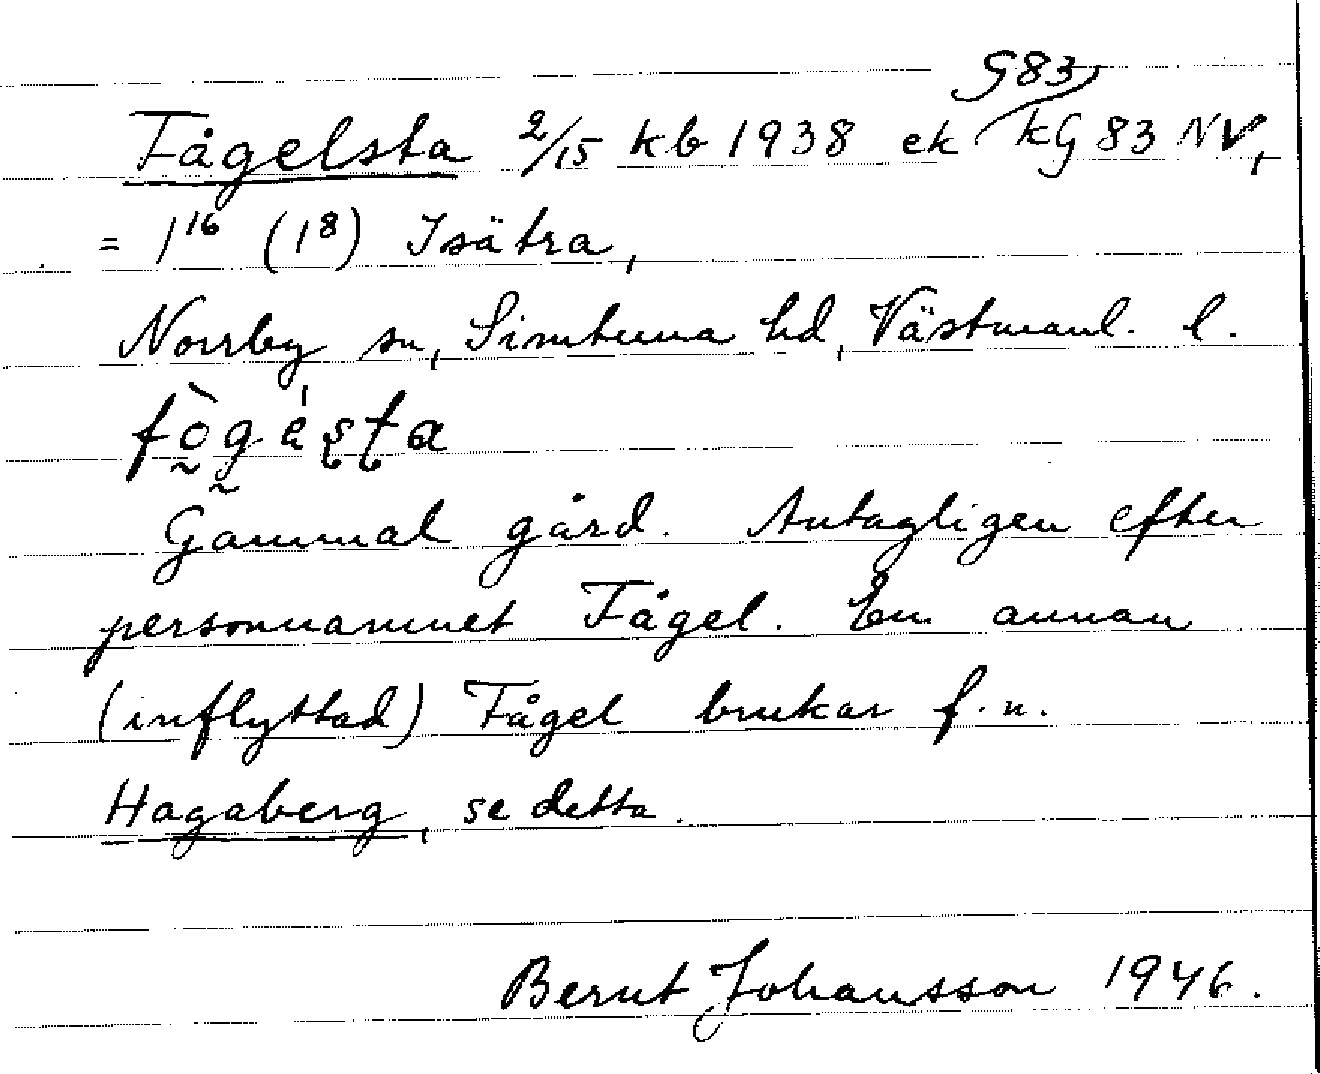 G83
Fågelsta 2/15 kb 1938 ek kG 83 NV,
= 1¹⁶ (1⁸) Isätra,
Norrby sn, Simtuna hd, Västmanl. l.
Gammal gård. Antagligen efter
personnamnet Fågel. En annan
(inflyttad) Fågel brukar f.n.
Hagaberg, se detta.
Bernt Johansson 1946.